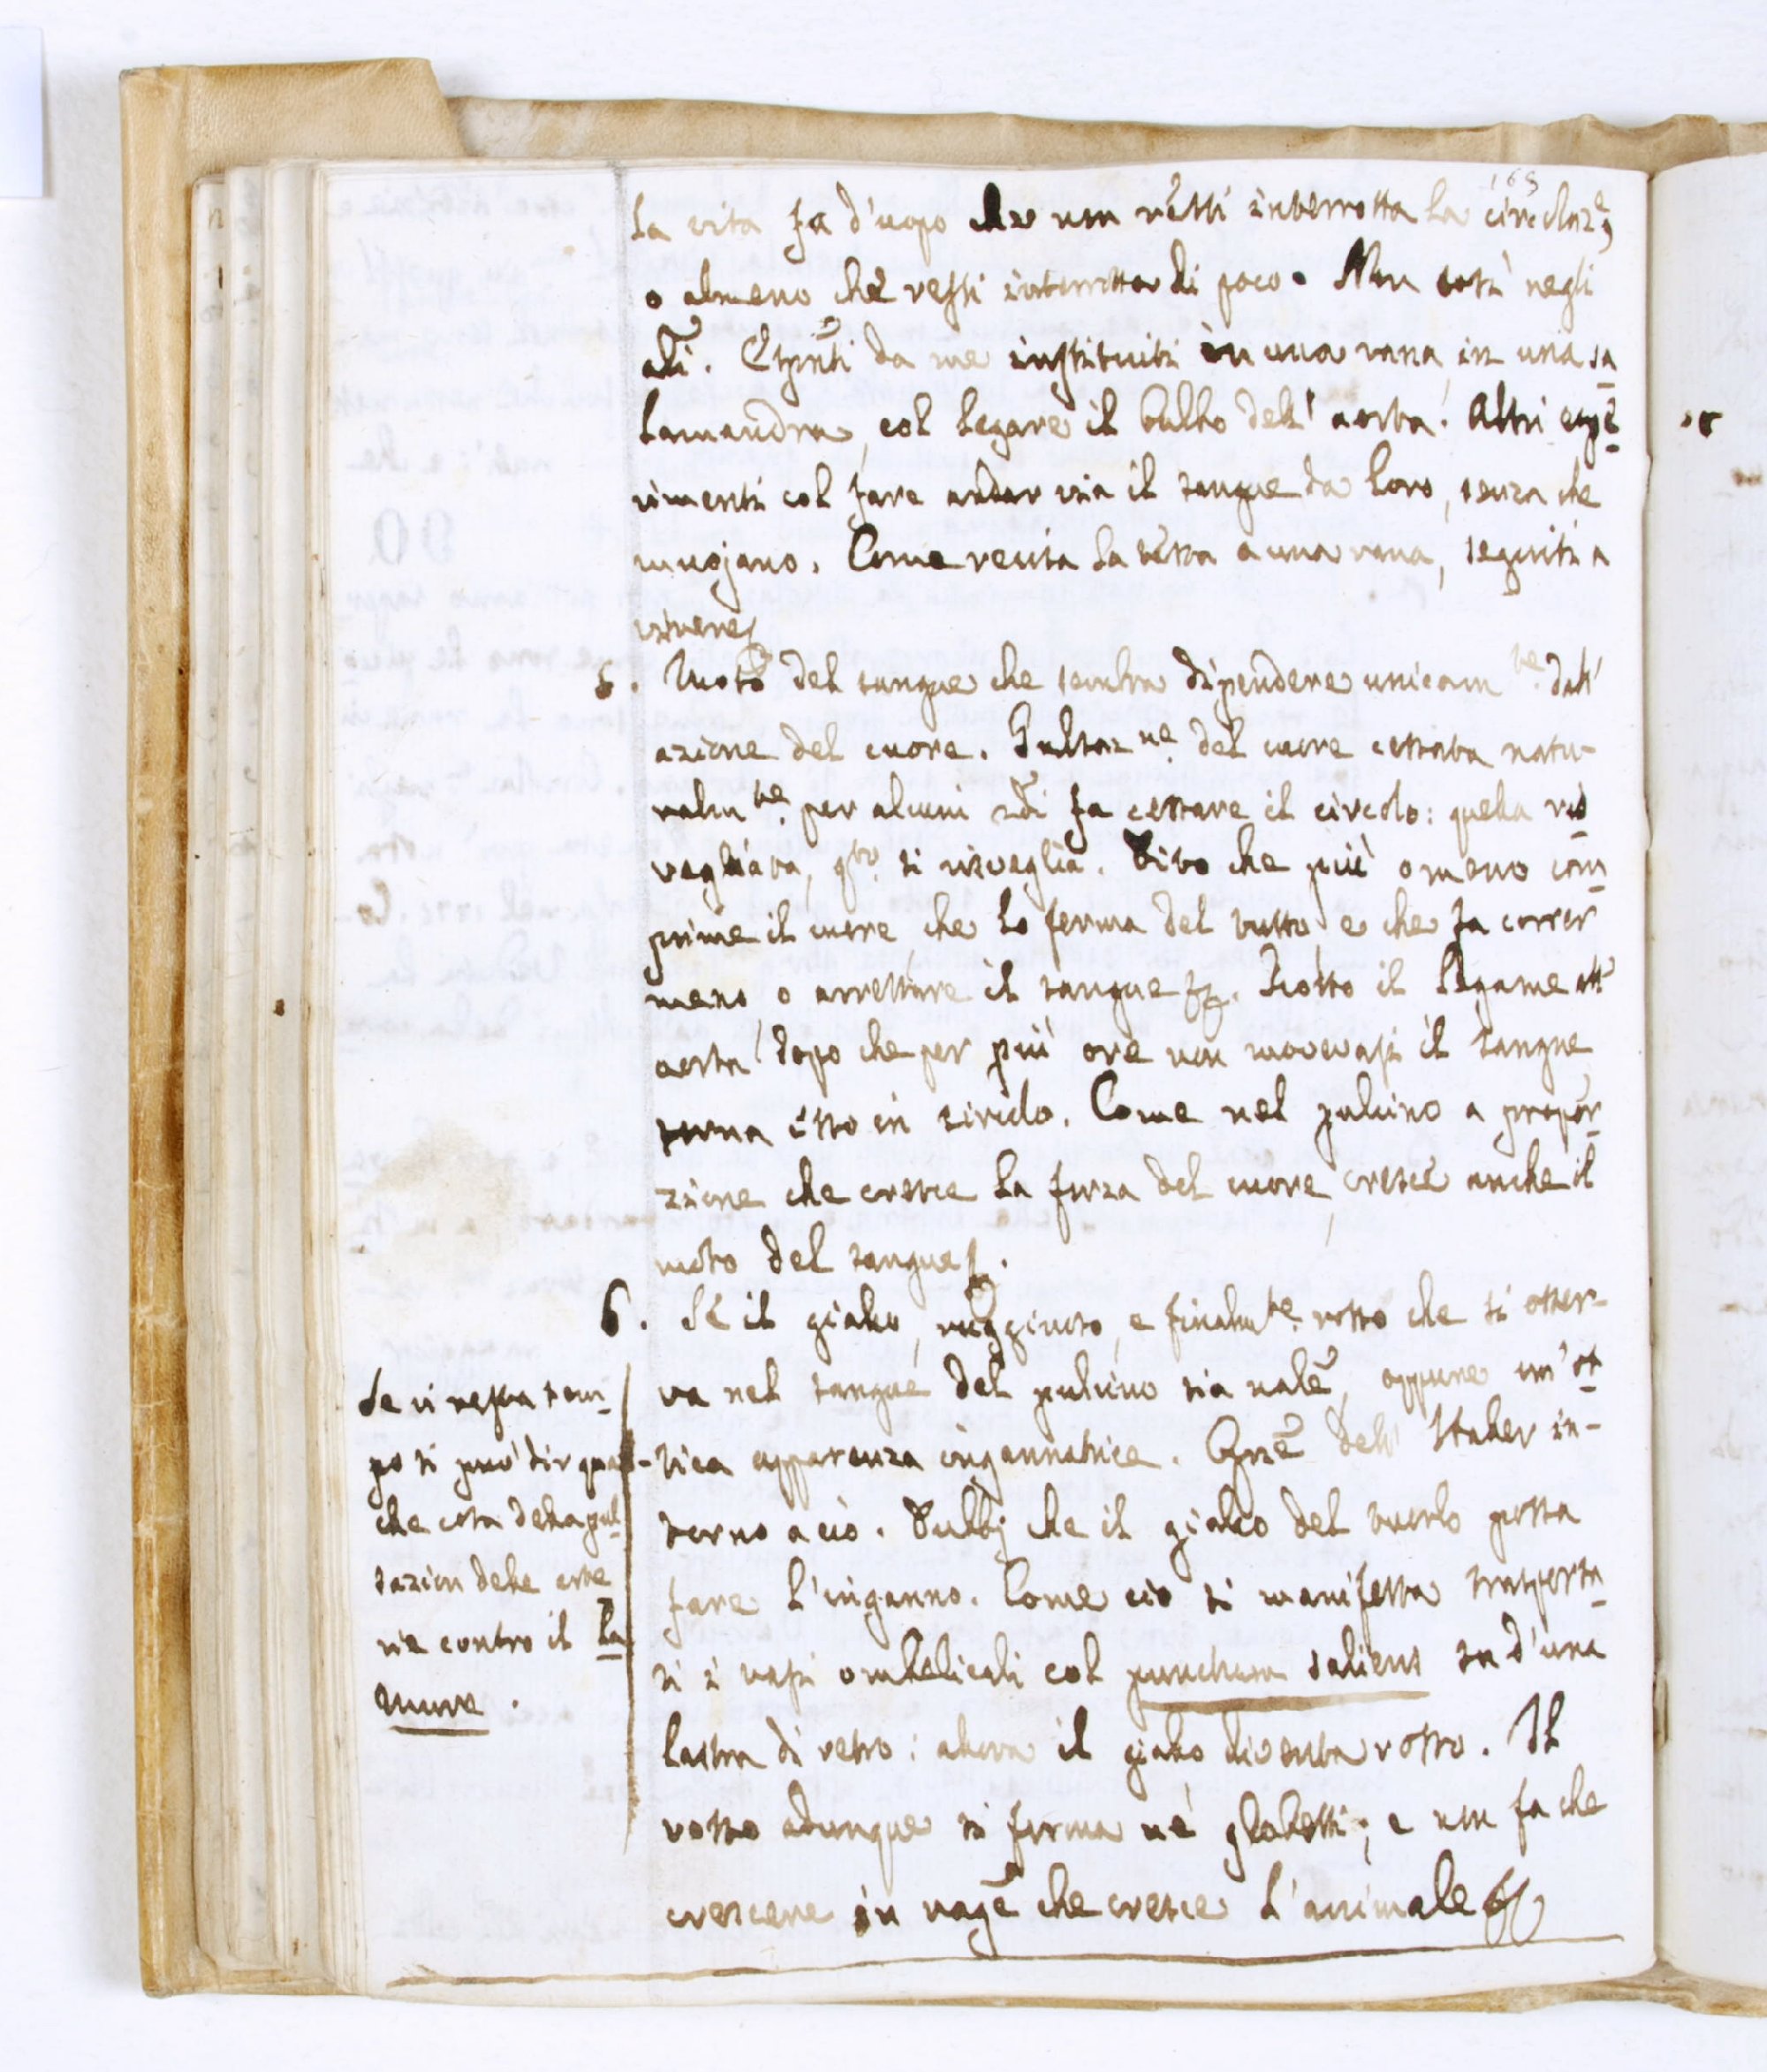 165
la vita fa d'uopo che non resti interrotta la circolaz.e,
o almeno che resti interrotta di poco. Non così negli
ali. Espnti da me instituiti in una rana, in una sa
lamandra, col legare il bulbo dell'aorta. Altri espe
rimenti col fare andar via il sangue da loro, senza che
muojano. Come recisa la testa a una rana, seguiti a
vivere
5. Moto del sangue che sembra dipendere unicam.te dall'
azione del cuore. Pulsaz.ne del cuore cessata natu-
ralm.te per alcuni fa cessare il circolo: quella ris
vegliata, si risveglia. Dito che più o meno com
prime il cuore che lo ferma del tutto e che fa correr
meno o arrestare il sangue. Sciolto il legame all'
aorta dopo che per più ore non movevasi il sangue
torna esso in circolo. Come nel pulcino a propor
zione che cresce la forza del cuore, cresce anche il
moto del sangue.
6. Se il giallo, rugginoso, e finalm.te rosso che si osser-
va nel sangue del pulcino sia nale, oppure un'ot
tica apparenza ingannatrice. Opne dell'Haller in-
torno a ciò. Dubbj che il giallo del tuorlo possa
fare l'inganno. Come ciò si manifesta trasporta
ti i vasi ombelicali col punctum saliens su d'una
lastra di vetro: allora il giallo diventa rosso. Il
rosso adunque si forma né globetti; e non fa che
crescere in rage che cresce l'animale
Se vi resta tem
po si può dir qual-
che cosa della pul
sazion delle arte
rie contro il La
mure.